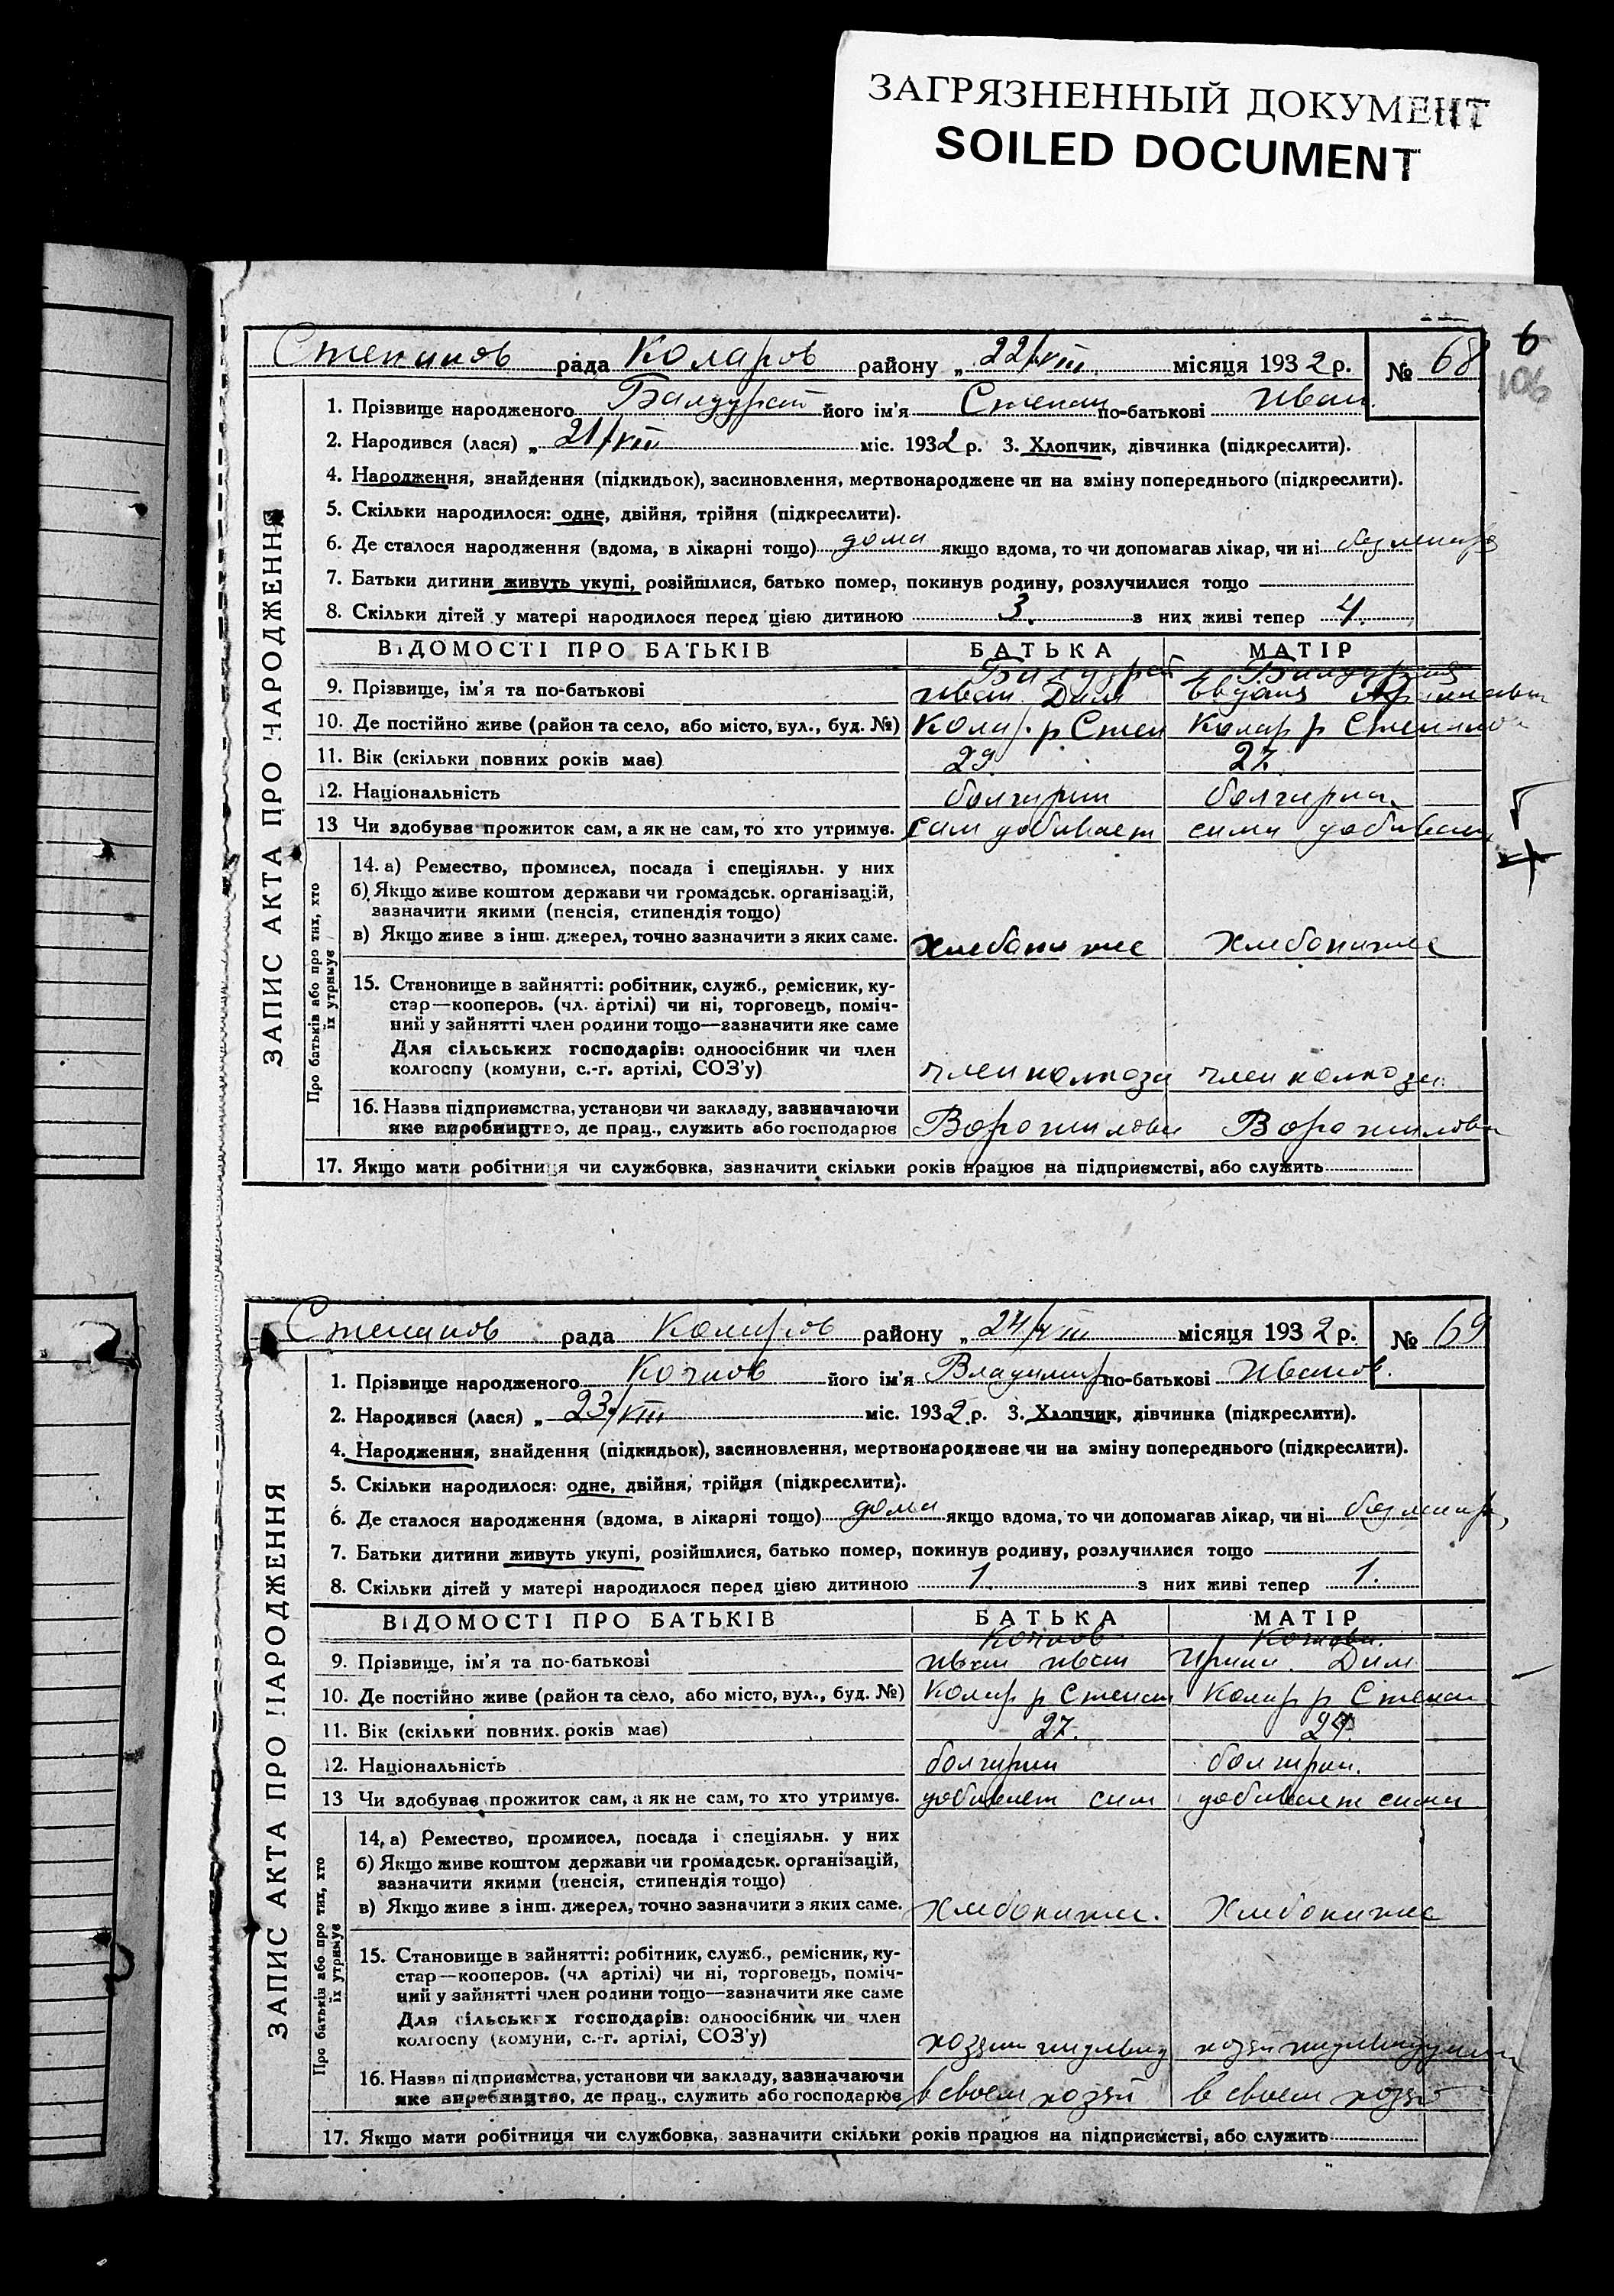 ЗАГРЯЗНЕННЫЙ ДОКУМЕНТ
SOILED DOCUMENT
6
106
Степанов рада Коларов району „ 22/VIII місяця 1932 р. № 68
1. Прізвище народженого його ім'я Степан по-батькові Иван
2. Народився (лася) „ 21/VIII міс. 1932 р. 3. Хлопчик, дівчинка (підкреслити).
4. Народження, знайдення (підкидьок), засиновлення, мертвонароджене чи на зміну попереднього (підкреслити).
5. Скільки народилося: одне, двійня, трійня (підкреслити).
6. Де сталося народження (вдома, в лікарні тощо) дома якщо вдома, то чи допомагав лікар, чи ні
7. Батьки дитини живуть укупі, розійшлися, батько помер, покинув родину, розлучилися тощо
8. Скільки дітей у матері народилося перед цією дитиною 3. з них живі тепер 4.
ВІДОМОСТІ ПРО БАТЬКІВ БАТЬКА МАТІР
9. Прізвище, ім'я та по-батькові Иван Дим
10. Де постійно живе (район та село, або місто, вул., буд. №) Колар. р Степ Колар р Степанов
11. Вік (скільки повних років має) 29. 27.
12. Національність болгарин болгарин
13 Чи здобував прожиток сам, а як не сам, то хто утримує. сам добивает сама добивает
14. а) Ремество, промисел, посада і спеціяльн. у них
б) Якщо живе коштом держави чи громадськ. організацій,
зазначити якими (пенсія, стипендія тощо)
в) Якщо живе з інш. джерел, точно зазначити з яких саме. хлебопашес хлебопашес
15. Становище в зайнятті: робітник, служб., ремісник, ку-
стар—кооперов. (чл. артілі) чи ні, торговець, поміч-
ний у зайнятті член родини тощо—зазначити яке саме
Для сільських господарів: одноосібник чи член
колгоспу (комуни, с.-г. артілі, СОЗ'у) член колхоза член колхоза
16. Назва підприємства, установи чи закладу, зазначаючи
яке виробництво, де прац., служить або господарює Ворошилова Ворошилова
17. Якщо мати робітниця чи службовка, зазначити скільки років працює на підприємстві, або служить
ЗАПИС АКТА ПРО НАРОДЖЕННЯ
Про батьків або про тих, хто
їх утримує
Степанов рада Коларов району „ 24/VIII місяця 1932 р. № 69
1. Прізвище народженого Кочнов його ім'я Владимир по-батькові Иванов.
2. Народився (лася) „ 23/VIII міс. 1932 р. 3. Хлопчик, дівчинка (підкреслити).
4. Народження, знайдення (підкидьок), засиновлення, мертвонароджене чи на зміну попереднього (підкреслити).
5. Скільки народилося: одне, двійня, трійня (підкреслити).
6. Де сталося народження (вдома, в лікарні тощо) дома якщо вдома, то чи допомагав лікар, чи ні
7. Батьки дитини живуть укупі, розійшлися, батько помер, покинув родину, розлучилися тощо
8. Скільки дітей у матері народилося перед цією дитиною 1. з них живі тепер 1.
ВІДОМОСТІ ПРО БАТЬКІВ БАТЬКА МАТІР
Кочнов Кочнова.
9. Прізвище, ім'я та по-батькові Иван Иван Ирина. Дим
10. Де постійно живе (район та село, або місто, вул., буд. №) Колар р Степан Колар р Степан
11. Вік (скільки повних років має) 27.
12. Національність болгарин болгарин.
13 Чи здобував прожиток сам, а як не сам, то хто утримує. добивает сам добивает сама
14. а) Ремество, промисел, посада і спеціяльн. у них
б) Якщо живе коштом держави чи громадськ. організацій,
зазначити якими (пенсія, стипендія тощо)
в) Якщо живе з інш. джерел, точно зазначити з яких саме. хлебопашес. хлебопашес
15. Становище в зайнятті: робітник, служб., ремісник, ку-
стар—кооперов. (чл артілі) чи ні, торговець, поміч-
ний у зайнятті член родини тощо—зазначити яке саме
Для сільських господарів: одноосібник чи член
колгоспу (комуни, с.-г. артілі, СОЗ'у)
16. Назва підприємства, установи чи закладу, зазначаючи
яке виробництво, де прац., служить або господарює в своем хозяй в своем
17. Якщо мати робітниця чи службовка, зазначити скільки років працює на підприємстві, або служить
ЗАПИС АКТА ПРО НАРОДЖЕННЯ
Про батьків або про тих, хто
їх утримує